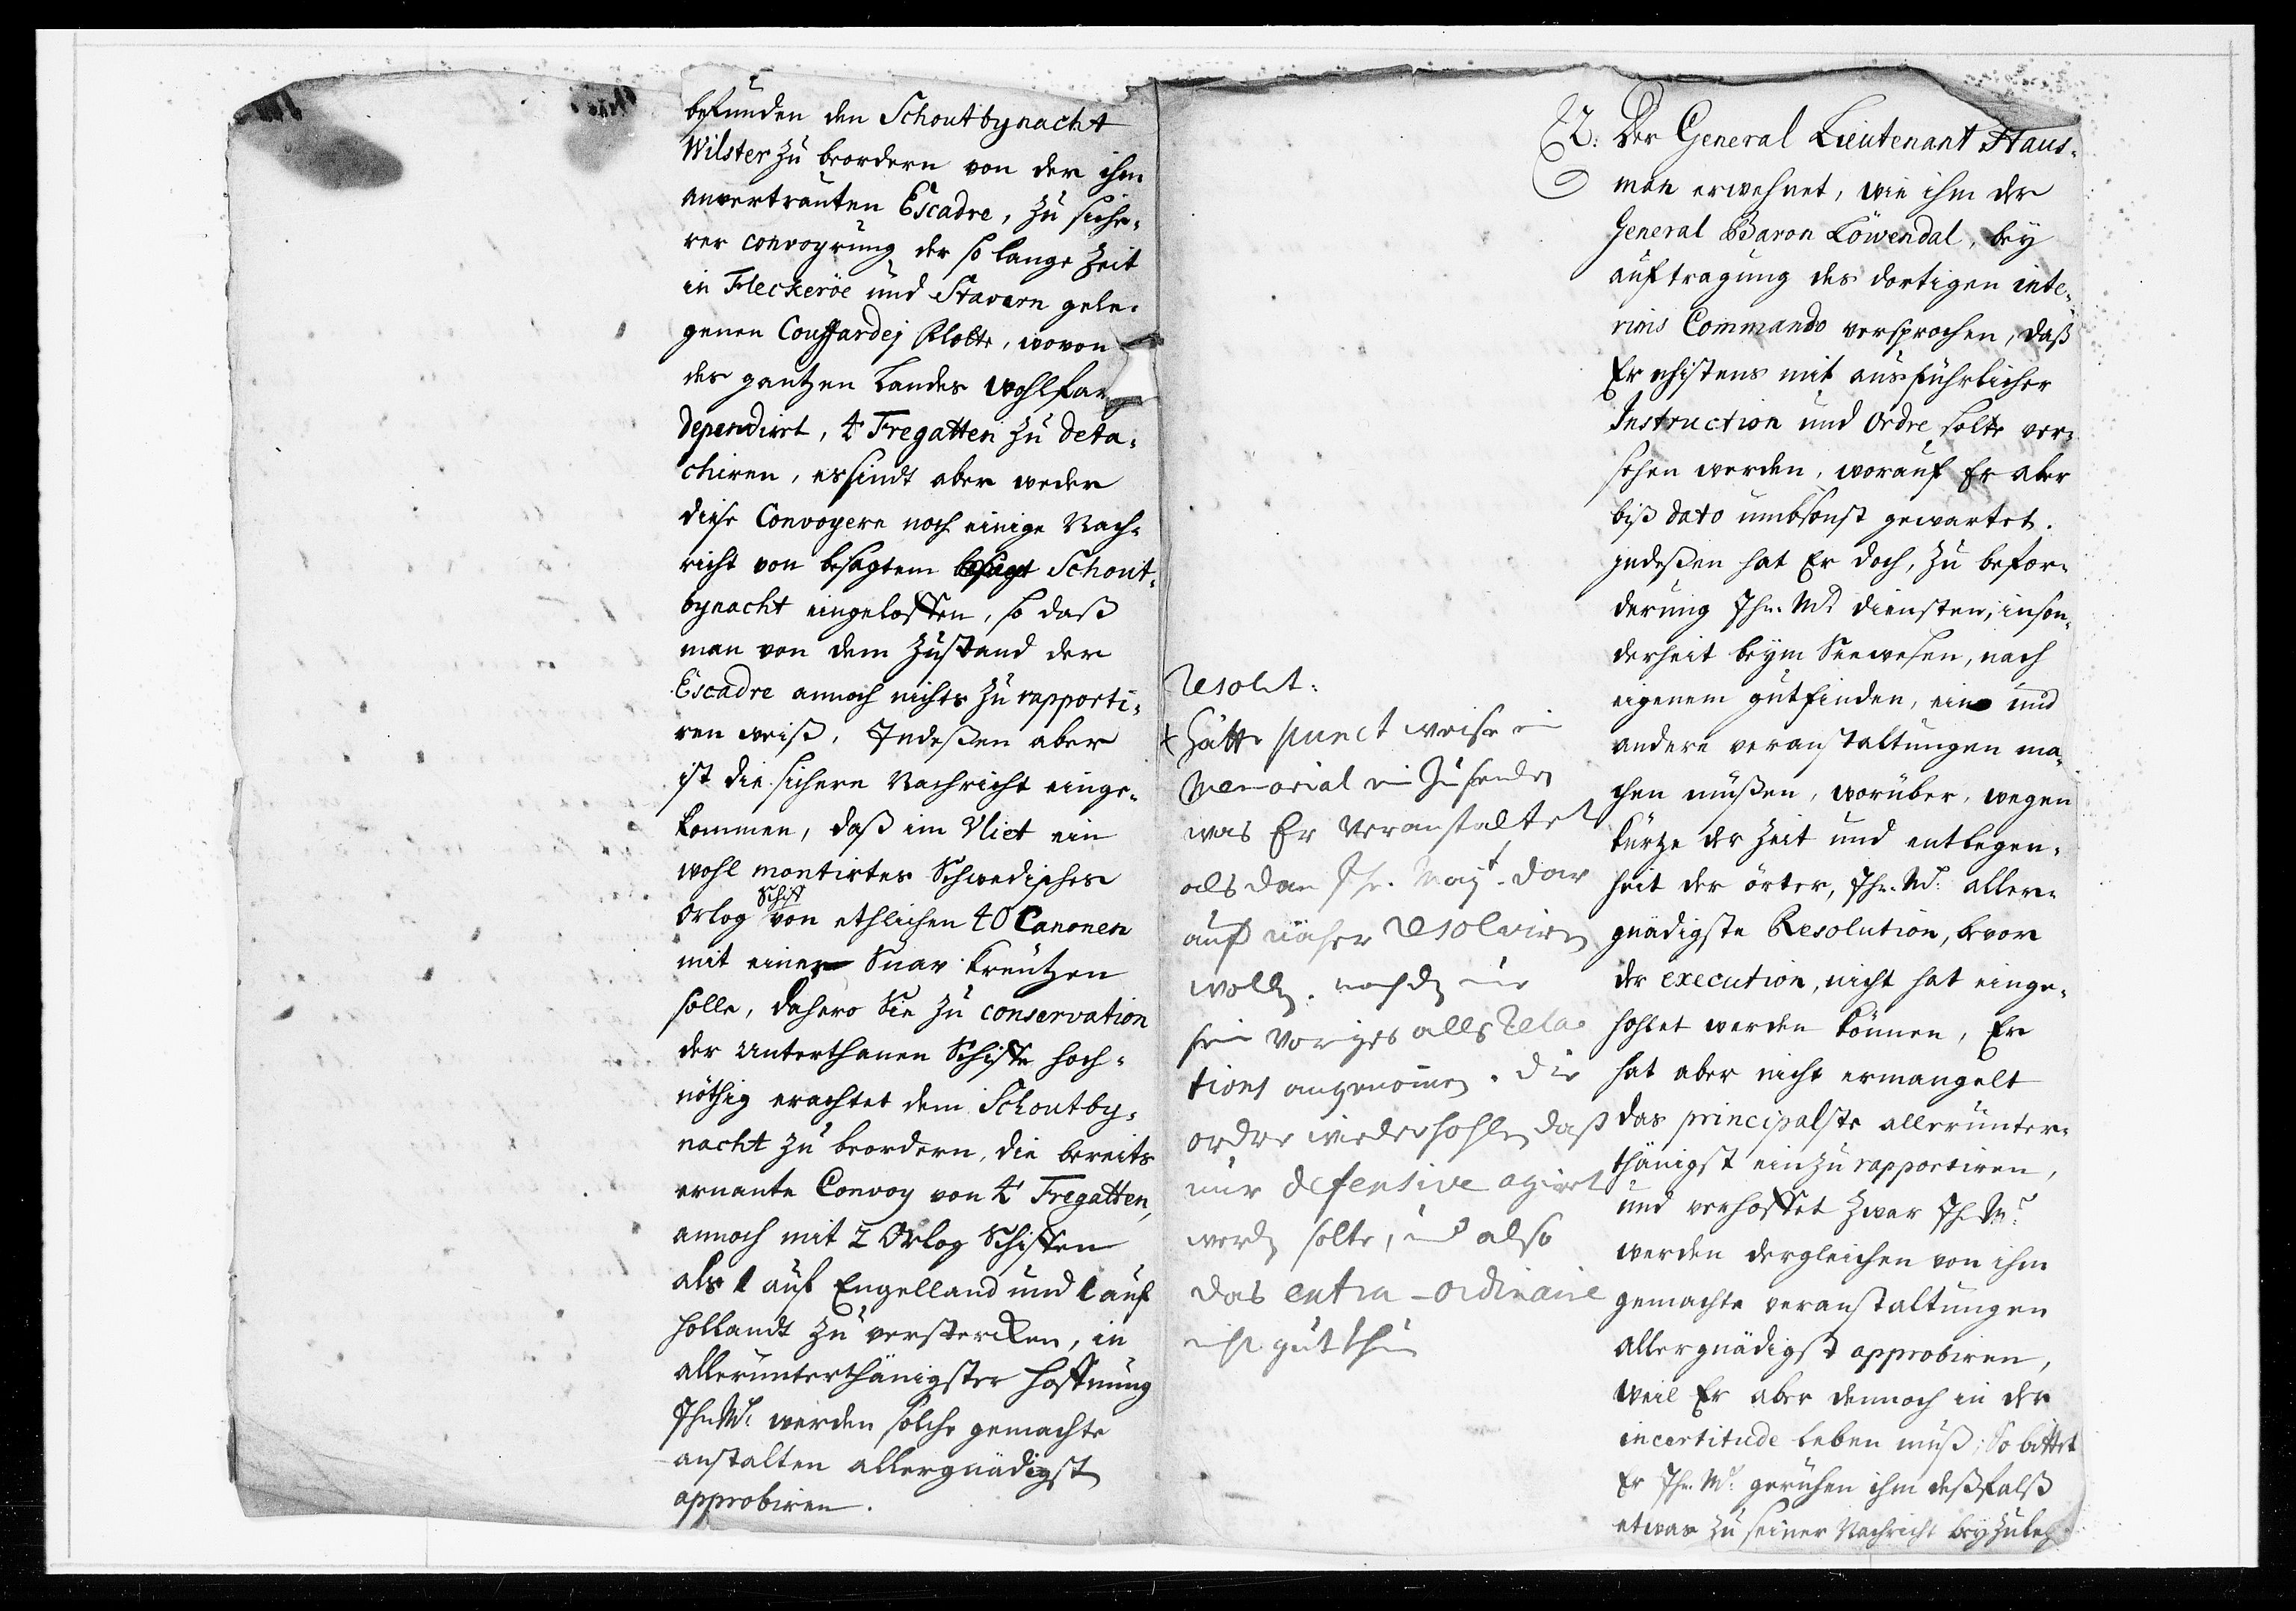 befunden den Schoutbynacht
Wilster zu beordern von der ihm
anvertrauten Escadre, zu siche-
rer convoyrung der so lange Zeit
in Fleckeröe und Stavern gele-
genen Couffardej Flotte, wovon
des gantzen Landes wohlfar
dependirt, 4 Fregatten zu deta-
chiren, es sindt aber weder
diese Convoyere noch einige Nach-
richt von besagtem Schout-
bynacht eingeloffen, so daß
man von dem Zustand der
Escadre annoch nichts zu rapporti-
ren weiß. Indeßen aber
ist die sichere Nachricht einge-
kommen, daß im Vliet ein
wohl montirtes Schwedisches
Schiff
Orlog von ethlichen 40 Canonen
mit einer Snav kreutzen
solle, dahero Sie zu conservation
der Unterthanen Schiffe hoch-
nöthig erachtet dem Schoutby-
nacht zu beordern, die bereits
ernante Convoy von 4 Fregatten,
annoch mit 2 Orlog Schiffen
als 1 auf Engelland und 1 auf
Hollandt zu verstercken, in
allerunterthänigster Hoffnung
Ihr. Mt. werden solche gemachte
anstalten allergnädigst
approbiren.
Resolut:
+ hätte punct weise ein
Memorial ein zu senden
was Er veranstaltet
als dan Ihr. Mayt. dar
auf näher resolviren
wollen. nachdem
sein voriges alls Rela-
tions angenommen. Die
ordre wiederhohlen daß
nur defensive agirt
werden solte, und also
das extra-ordinaire
nicht gut thun
2. Der General Lieutenant Haus-
man erwehnet, wie ihm der
General Baron Löwendal, bey
auftragung des dortigen inte-
rims Commando versprochen, daß
Er ehistens mit ausführlicher
Instruction und Ordre solte ver-
sehen werden, worauf Er aber
biß dato umbsonst gewartet.
Indeßen hat Er doch, zu befor-
derung Ihr. Mt. diensten, inson-
derheit beym Seewesen, nach
eigenem gutfinden, ein und
andere veranstaltungen ma-
chen müßen, worüber, wegen
kürtze der Zeit und entlegen-
heit der örter, Ihr. Mt. aller-
gnädigste Resolution, bevor
der execution, nicht hat einge-
hohlet werden können, Er
hat aber nicht ermangelt
das principalste allerunter-
thänigst einzurapportiren,
und verhoffet zwar Ihr. Mt.
werden dergleichen von ihm
gemachte veranstaltungen
allergnädigst approbiren,
weil Er aber dennoch in der
incertitude leben muß; So bittet
Er Ihr. Mt. geruhen ihm deßfalß
etwas zu seiner Nachricht beyzuleg